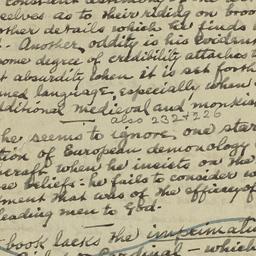 selves as to their riding on broo
other details which he finds
. Another oddity is his
some degree of credibility attaches t
t absurdity when it is set forth
ned language, especially when
dditional medieval and monkis
also 232 + 226
he seems to ignore one star
tion of European demonology
craft when he insists on the
se beliefs: he fails to consider
ment that was of the efficacy of
leading men to God.
book lacks the imprimatu
Cardinal — which